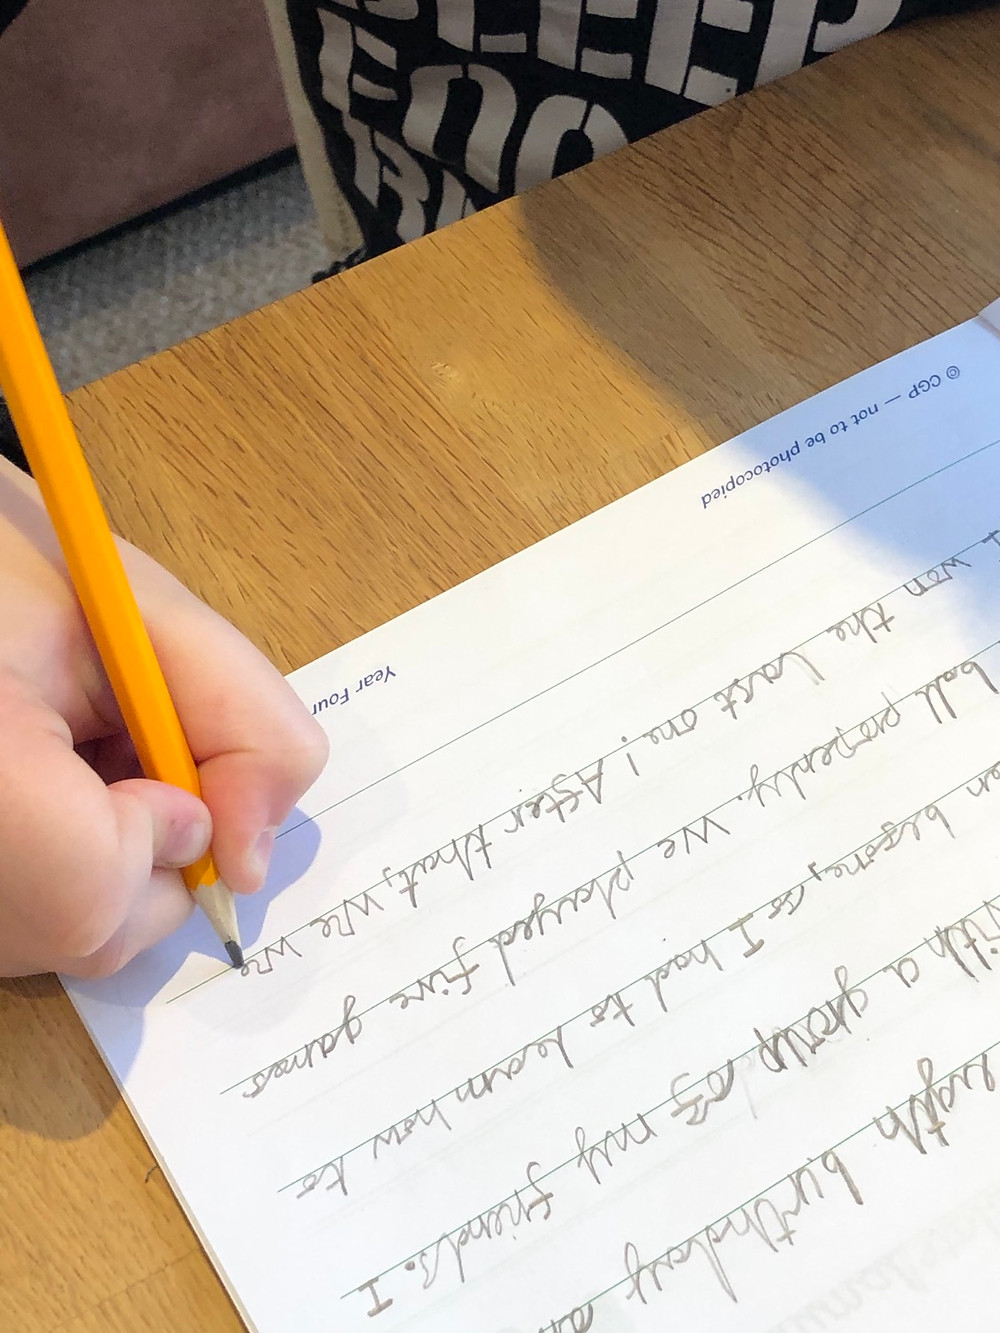 birthday
with a group of my friends. I
before, so I had to learn how to
ball properly. We played five games
I won the last one! After that, we we
© CGP — not to be photocopied
Year Four